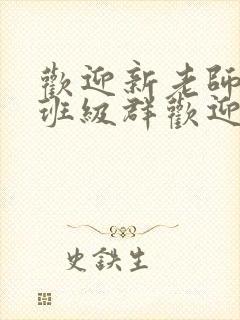 歡迎新老師
班級群歡迎
史鉄生